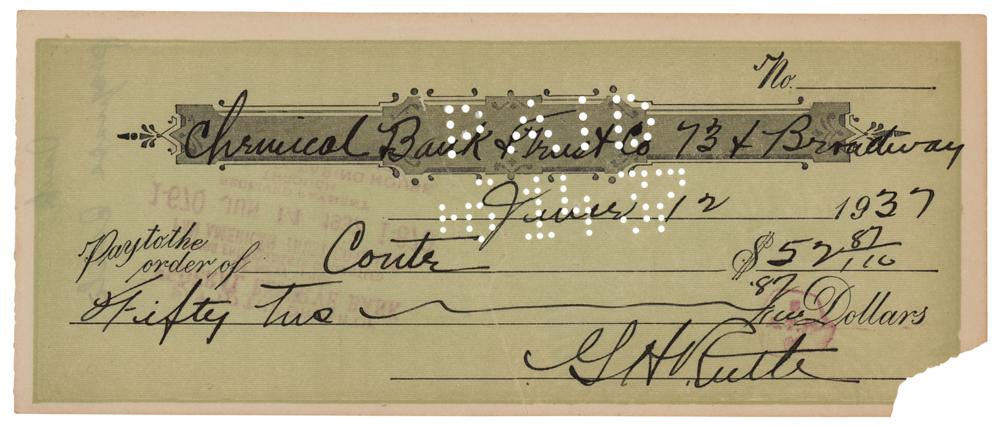 No.
Chemical Bank & Trust Co 73 & Broadway
PAID
June 12 1937
6-14-37
Pay to the order of $52 87/100
Fifty Two 87 Dollars
G H Ruth